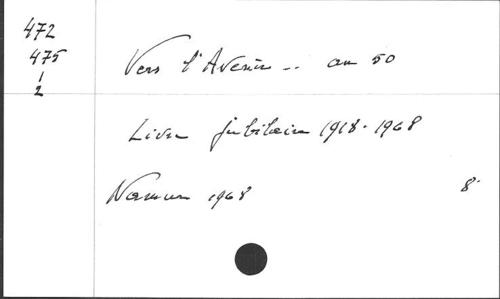 472
475
1
2
Vers l'Avenir .. an 50
Livre jubilaire 1918-1968
Namur 1968 8°